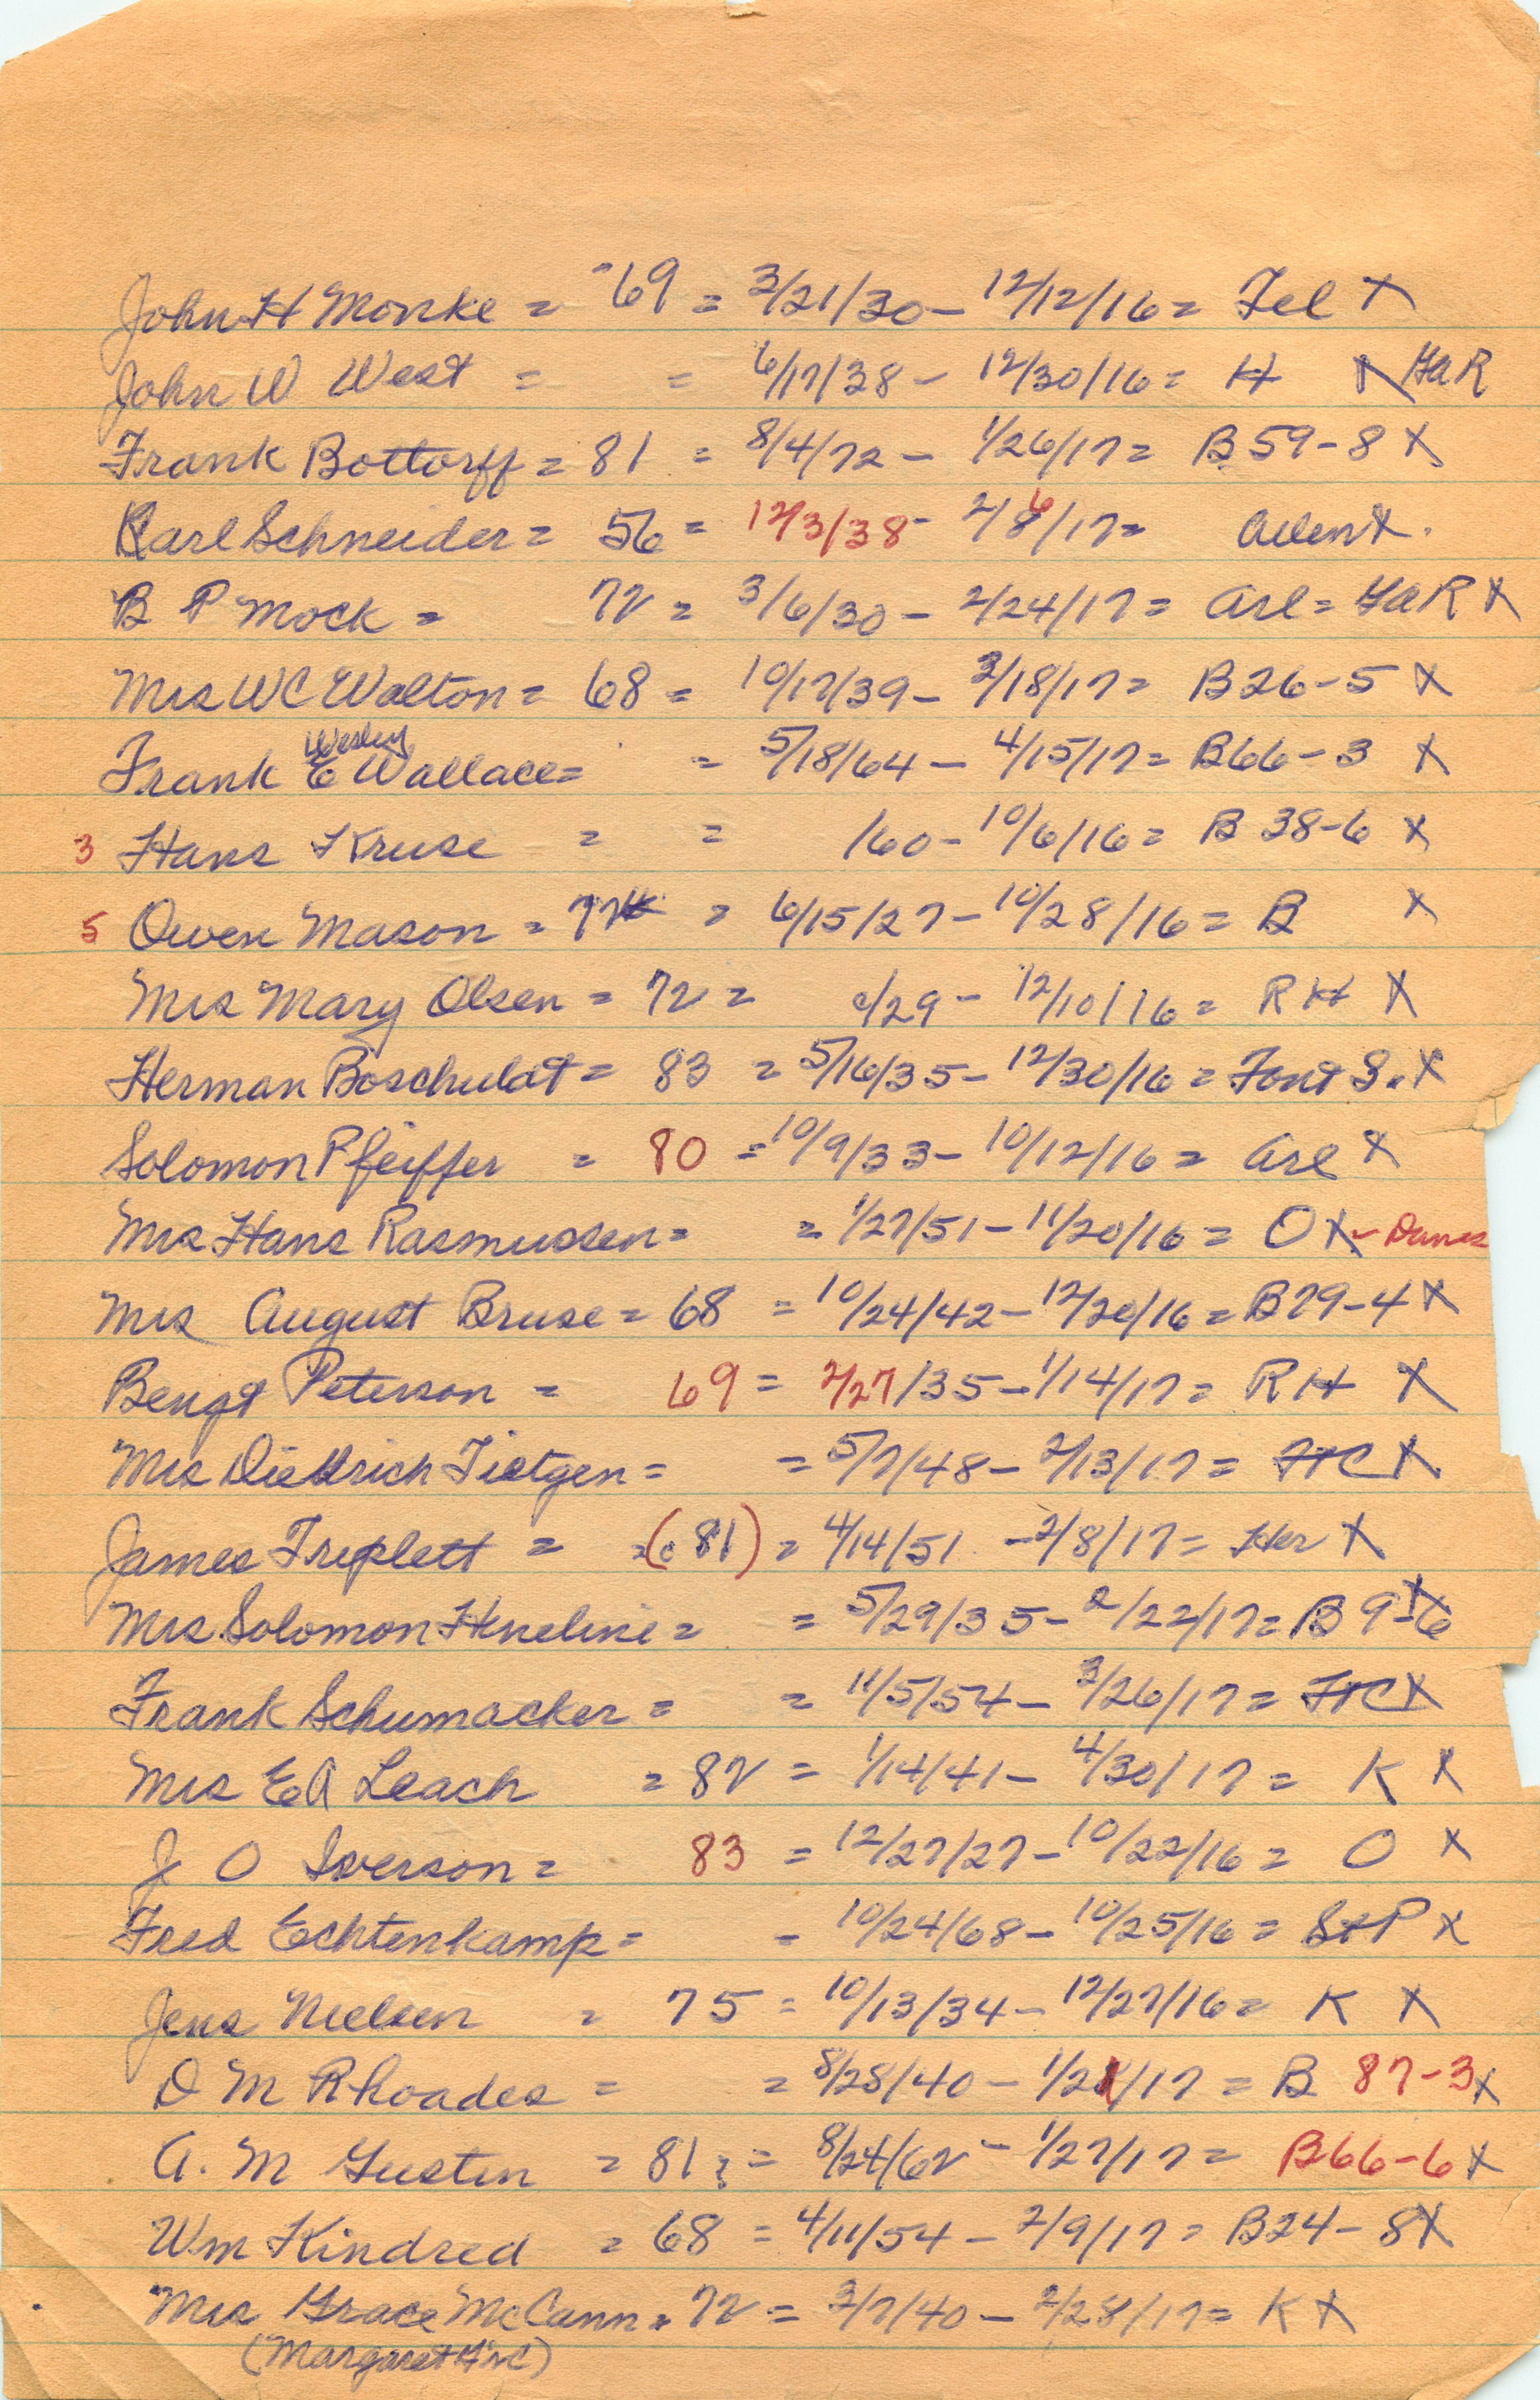 John H Monke = -69 = 3/21/30 - 12/12/16 = Tel X
John W West = = 6/17/38 - 12/30/16 = H X GAR
Frank Bottorff = 81 = 8/4/72 - 1/26/17 = B 59-8 X
Karl Schneider = 56 = 12/3/38 - 2/8/17 = 6
B P Mock = 72 = 3/6/30 - 2/24/17 = Arl = GAR X
Mrs WC Walton = 68 = 10/17/39 - 3/18/17 = B26-5 X
Wesley
Frank E Wallace = = 5/18/64 - 4/15/17 = B66-3 X
3 Hans Kruse = = /60 - 10/6/16 = B 38-6 X
5 Owen Mason = 72 = 6/15/27 - 10/28/16 = B X
Mrs Mary Olsen = 72 = /29 - 12/10/16 = RH X
Herman Boschulat = 83 = 5/16/35 - 12/30/16 = Font S. X
Solomon Pfeiffer = 80 = 10/9/33 - 10/12/16 = Arl X
Mrs Hans Rasmussen = = 1/27/51 - 11/20/16 = O X - Danes
Mrs August Bruse = 68 = 10/24/42 - 12/20/16 = B79-4 X
Bengt Peterson = 69 = 2/27/35 - 1/14/17 = RH X
Mrs Diettrich Tietgen = = 5/7/48 - 2/13/17 = FTC X
James Triplett = (c 81) = 4/14/51 - 2/8/17 = Her X
Mrs Solomon Heneline = = 5/29/35 - 2/22/17 = B 9-6 X
Frank Schumacker = = 11/5/54 - 3/26/17 = FTC X
Mrs EA Leach = 82 = 1/14/41 - 4/30/17 = K X
J O Iverson = 83 = 12/27/27 - 10/22/16 = O X
Fred Echtenkamp = - 10/24/68 - 10/25/16 = StP X
Jens Nielsen = 75 = 10/13/34 - 12/27/16 = K X
D M Rhoades = = 8/28/40 - 1/21/17 = B 87-3 X
A. M Gustin = 81? = 8/24/62 - 1/27/17 = B66-6 X
Wm Kindred = 68 = 4/11/54 - 2/9/17 = B24-8 X
Mrs Grace McCann = 72 = 3/7/40 - 2/28/17 = K X
(Margaret